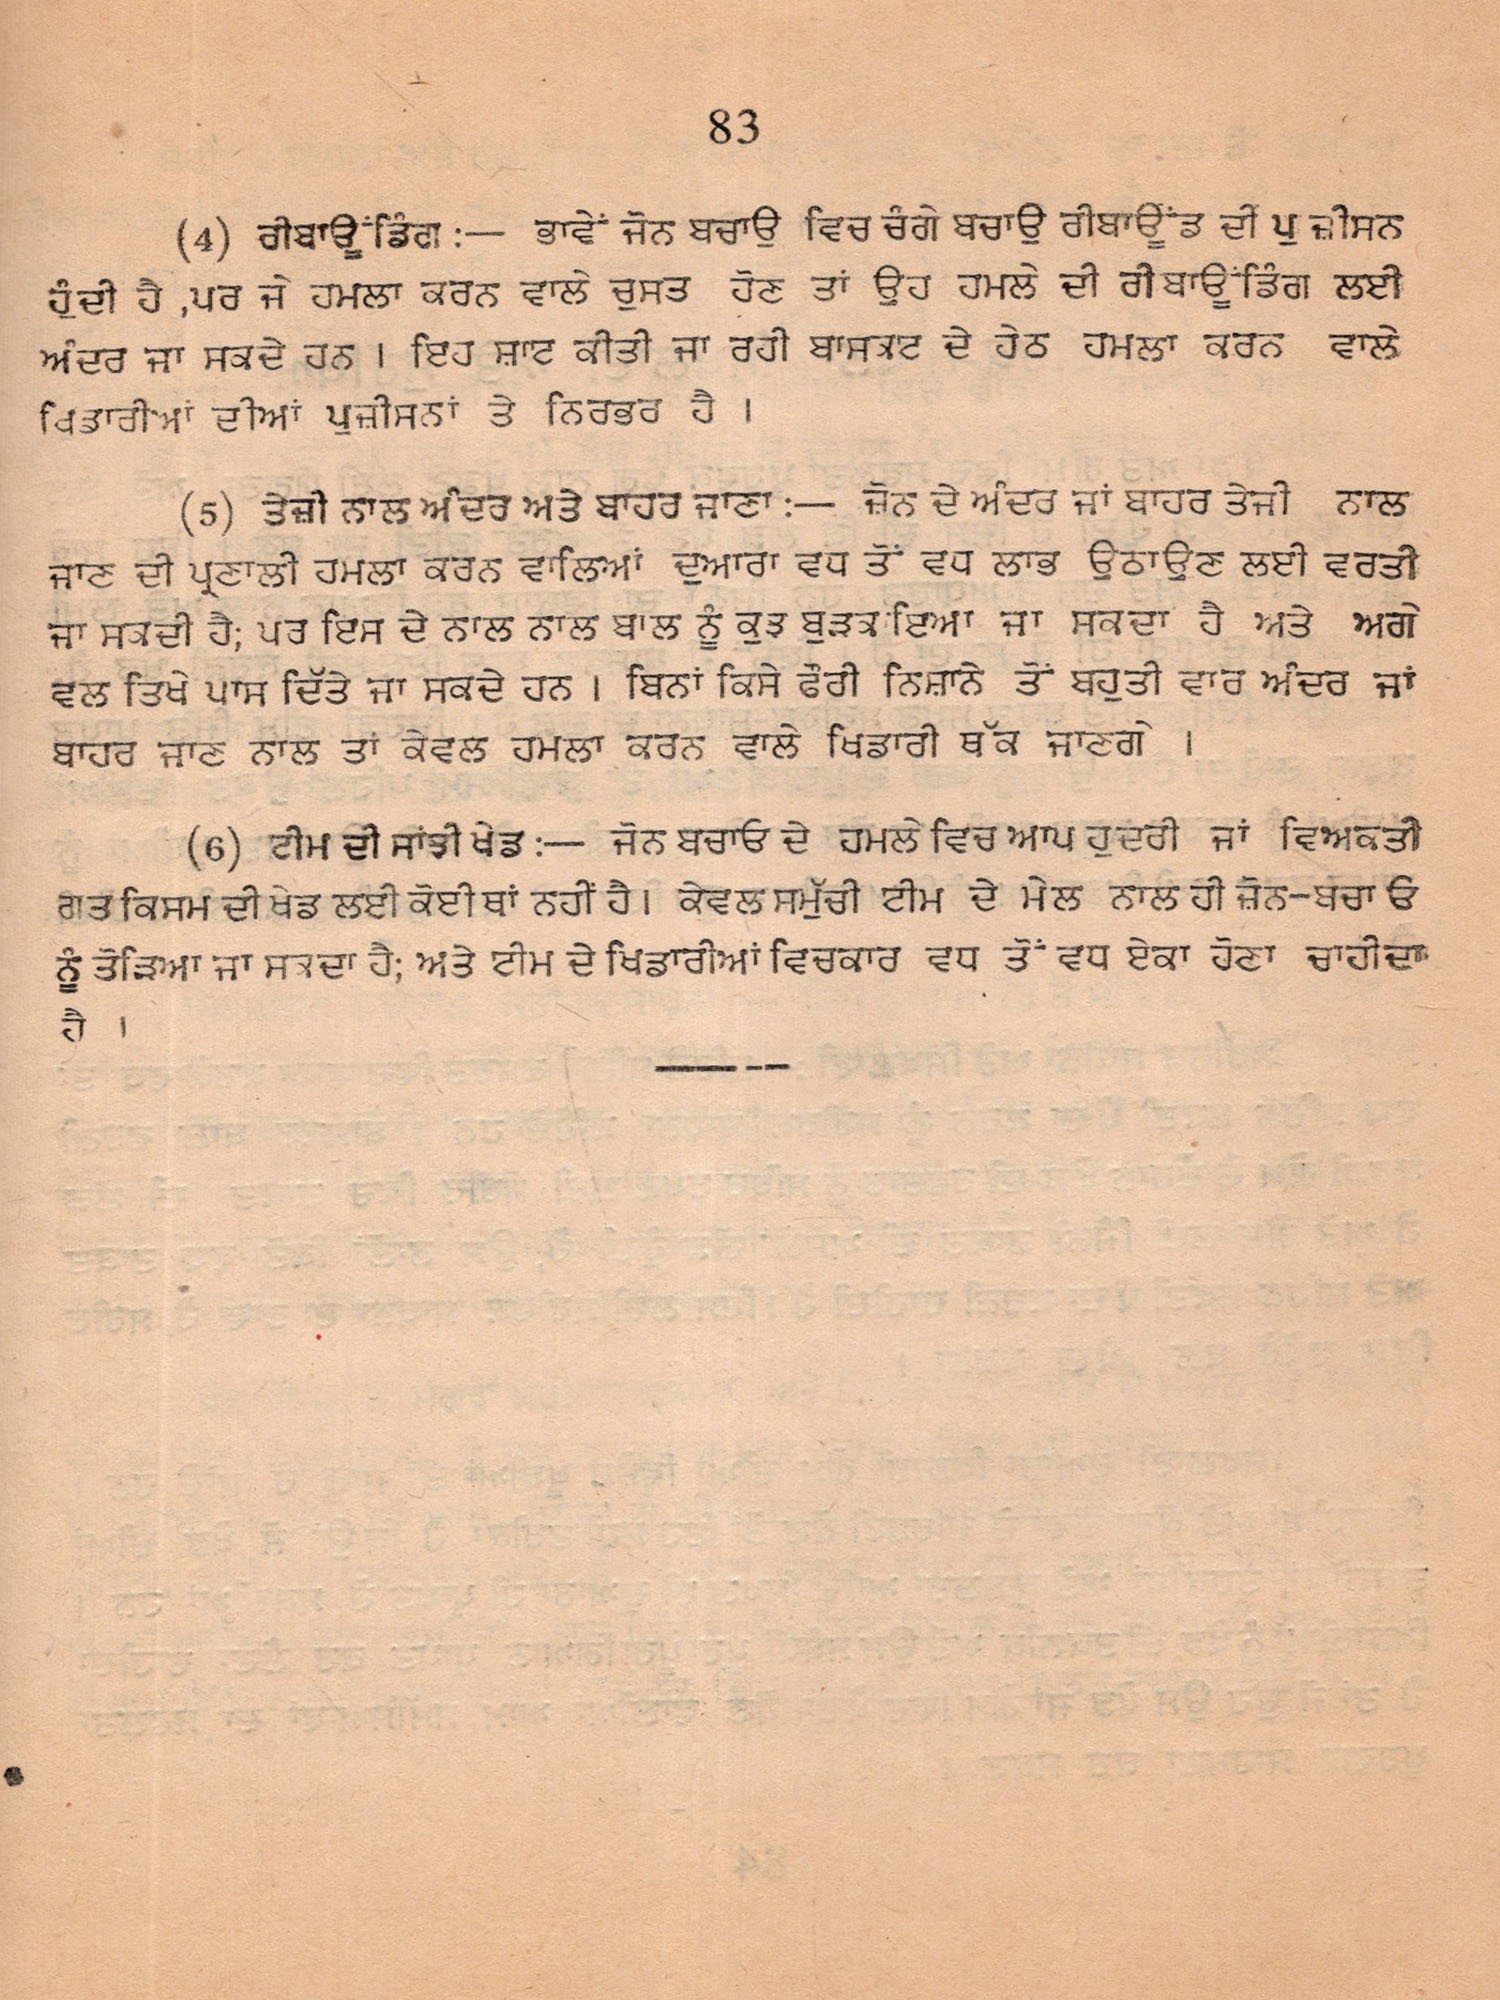 83
(4) ਰੀਬਾਊਂਡਿੰਗ :— ਭਾਵੇਂ ਜ਼ੋਨ ਬਚਾਉ ਵਿਚ ਚੰਗੇ ਬਚਾਉ ਰੀਬਾਊਂਡ ਦੀ ਪੁਜ਼ੀਸਨ
ਹੁੰਦੀ ਹੈ ,ਪਰ ਜੇ ਹਮਲਾ ਕਰਨ ਵਾਲੇ ਚੁਸਤ ਹੋਣ ਤਾਂ ਉਹ ਹਮਲੇ ਦੀ ਰੀਬਾਊਂਡਿੰਗ ਲਈ
ਅੰਦਰ ਜਾ ਸਕਦੇ ਹਨ । ਇਹ ਸ਼ਾਟ ਕੀਤੀ ਜਾ ਰਹੀ ਬਾਸਕਟ ਦੇ ਹੇਠ ਹਮਲਾ ਕਰਨ ਵਾਲੇ
ਖਿਡਾਰੀਆਂ ਦੀਆਂ ਪੁਜ਼ੀਸਨਾਂ ਤੇ ਨਿਰਭਰ ਹੈ ।
(5) ਤੇਜ਼ੀ ਨਾਲ ਅੰਦਰ ਅਤੇ ਬਾਹਰ ਜਾਣਾ :— ਜ਼ੋਨ ਦੇ ਅੰਦਰ ਜਾਂ ਬਾਹਰ ਤੇਜੀ ਨਾਲ
ਜਾਣ ਦੀ ਪ੍ਰਣਾਲੀ ਹਮਲਾ ਕਰਨ ਵਾਲਿਆਂ ਦੁਆਰਾ ਵਧ ਤੋਂ ਵਧ ਲਾਭ ਉਠਾਉਣ ਲਈ ਵਰਤੀ
ਜਾ ਸਕਦੀ ਹੈ; ਪਰ ਇਸ ਦੇ ਨਾਲ ਨਾਲ ਬਾਲ ਨੂੰ ਕੁਝ ਬੁੜਕਾਇਆ ਜਾ ਸਕਦਾ ਹੈ ਅਤੇ ਅਗੇ
ਵਲ ਤਿਖੇ ਪਾਸ ਦਿੱਤੇ ਜਾ ਸਕਦੇ ਹਨ । ਬਿਨਾਂ ਕਿਸੇ ਫੌਰੀ ਨਿਸ਼ਾਨੇ ਤੋਂ ਬਹੁਤੀ ਵਾਰ ਅੰਦਰ ਜਾਂ
ਬਾਹਰ ਜਾਣ ਨਾਲ ਤਾਂ ਕੇਵਲ ਹਮਲਾ ਕਰਨ ਵਾਲੇ ਖਿਡਾਰੀ ਥੱਕ ਜਾਣਗੇ ।
(6) ਟੀਮ ਦੀ ਸਾਂਝੀ ਖੇਡ :— ਜੋਨ ਬਚਾਓ ਦੇ ਹਮਲੇ ਵਿਚ ਆਪ ਹੁਦਰੀ ਜਾਂ ਵਿਅਕਤੀ
ਗਤ ਕਿਸਮ ਦੀ ਖੇਡ ਲਈ ਕੋਈ ਥਾਂ ਨਹੀਂ ਹੈ। ਕੇਵਲ ਸਮੁੱਚੀ ਟੀਮ ਦੇ ਮੇਲ ਨਾਲ ਹੀ ਜ਼ੋਨ-ਬਚਾਓ
ਨੂੰ ਤੋੜਿਆ ਜਾ ਸਕਦਾ ਹੈ; ਅਤੇ ਟੀਮ ਦੇ ਖਿਡਾਰੀਆਂ ਵਿਚਕਾਰ ਵਧ ਤੋਂ ਵਧ ਏਕਾ ਹੋਣਾ ਚਾਹੀਦਾ
ਹੈ ।